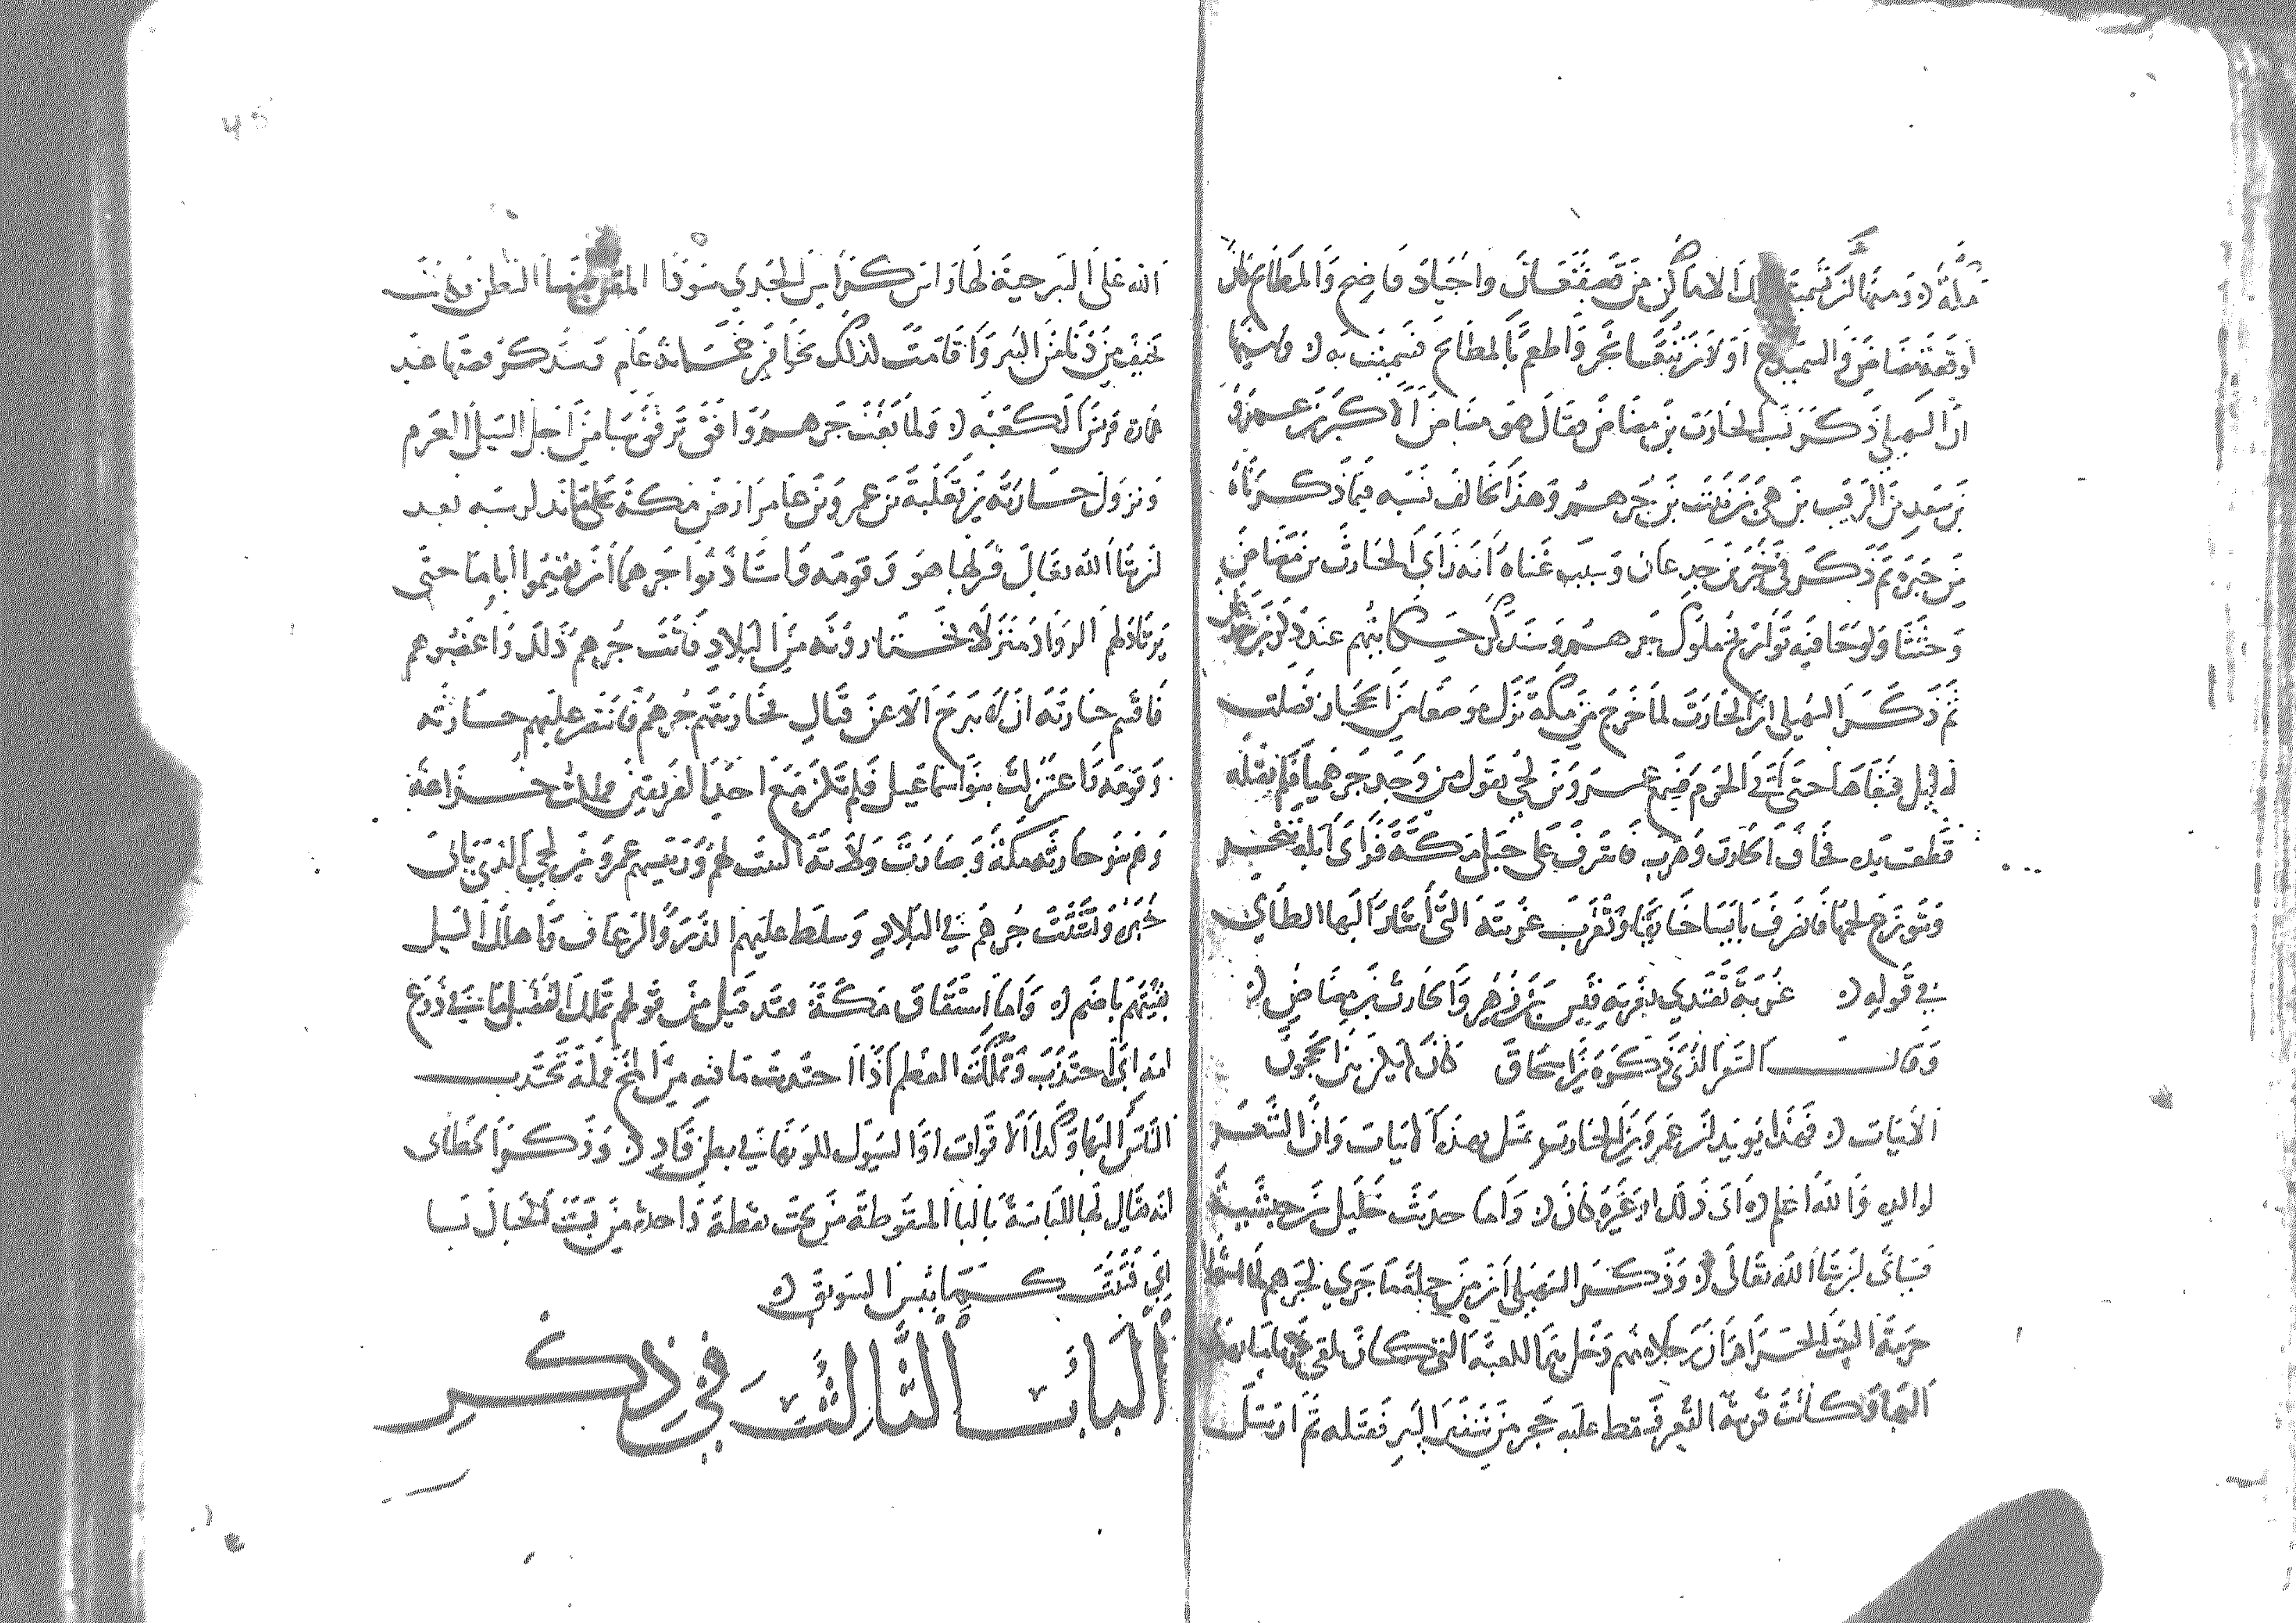 مكة ومنها ان تسمية تلك الاماكن من قعيقعان واجياد وفاضح والمطابخ كان
لوقعة مضاض والسميدع اولان تبعا نحر واطعم بالمطابخ فسميت به
ان السهيلي ذكر نسب الحارث بن مضاض فقال هو مضاض الاكبر بن عمرو
بن سعد بن الرقيب بن هي بن نبت بن جرهم وهذا يخالف نسبه فيما ذكرناه
ثم ذكر في خبر بن جدعان وسبب غناه انه راى الحارث بن مضاض
وجثثا ولوحا فيه تواريخ ملوك جرهم وسنذكر حكايتهم عند ذكر بن جدعان
ثم ذكر السهيلي ان الحارث لما خرج من مكة نزل موضعا من الحجاز فضلت
له ابل فبغاها حتى اتى الحرم فيهم عمرو بن لحي يقول من وجد جرهميا فلم يقتله
قطعت يده فخاف الحارث وهرب فاشرف على جبل مكة فراى ابله تنحر
وتوزع لحمها فانصرف يايسا خايفا وتغرب غربته التى اشار اليها الطاي
في قوله غربة تقتدي بغربة قيس بن زهير والحارث بن مضاض
وقال الشعر الذي ذكره بن اسحاق كان لم يكن بين الحجون
الابيات فهذا يويد ان عمرو بن الحارث تمثل بهذه الابيات وان الشعر
لوالده والله اعلم اى ذلك او غيره كان واما حديث خليل بن حبشية
فسياتى ان شا الله تعالى وذكر السهيلي ان من جملة ما جرى لجرهم لما استحلوا
حرمة البيت الحرام ان رجلا منهم دخل بير الكعبة التى كان يلقى فيها ما يهدى
اليها وكانت قريبة القعر فسقط عليه حجر من شفير البير فقتله ثم ارسل
الله على البير حية لها راس كراس الجدي سودا المتن بيضا البطن وكانت
تخيف من دنا من البير واقامت لذلك نحوا من خمسماية عام وسنذكر قصتها عند
عمارة قريش الكعبة ولما بغت جرهم وافق تفرق سبا من اجل السيل العرم
ونزول حارثة بن ثعلبة بن عمرو بن عامر ارض مكة على ما نذكر نسبه بعد
ان شا الله تعالى فنزلها هو وقومه فاستاذنوا جرهما ان يقيموا اياما حتى
يرتاد لهم الرواد منزلا يختارونه من البلاد فابت جرهم ذلك واغضبوهم
فاقسم حارثة ان لا يبرح الا عن قتال فحاربتهم جرهم فانتصر عليهم حارثة
وقومه واعتزلت بنو اسماعيل فلم تكن مع احد الفريقين فملكت خزاعة
وهم بنو حارثة مكة وصارت ولاية البيت لهم ورييسهم عمرو بن لحي الذي ياتى
خبره وتشتت جرهم في البلاد وسلط عليهم الذر والرعاف واهلك السيل
بقيتهم باضم واما اشتقاق مكة فقد قيل من قولهم تملك الفصيل ما في ضرع
امه اى اجتذب وتمككت العظم اذا اجتذبت ما فيه من المخ فمكة تجتذب
الناس اليها وكذا الاقوات او السيول لكونها في بطن واد وذكر الخطابى
انه يقال لها الباسة بالبا المنقوطة من تحت بنقطة واحدة من بست الجبال بسا
اى فتتت كما يبس السويق
الباب الثالث في ذكر